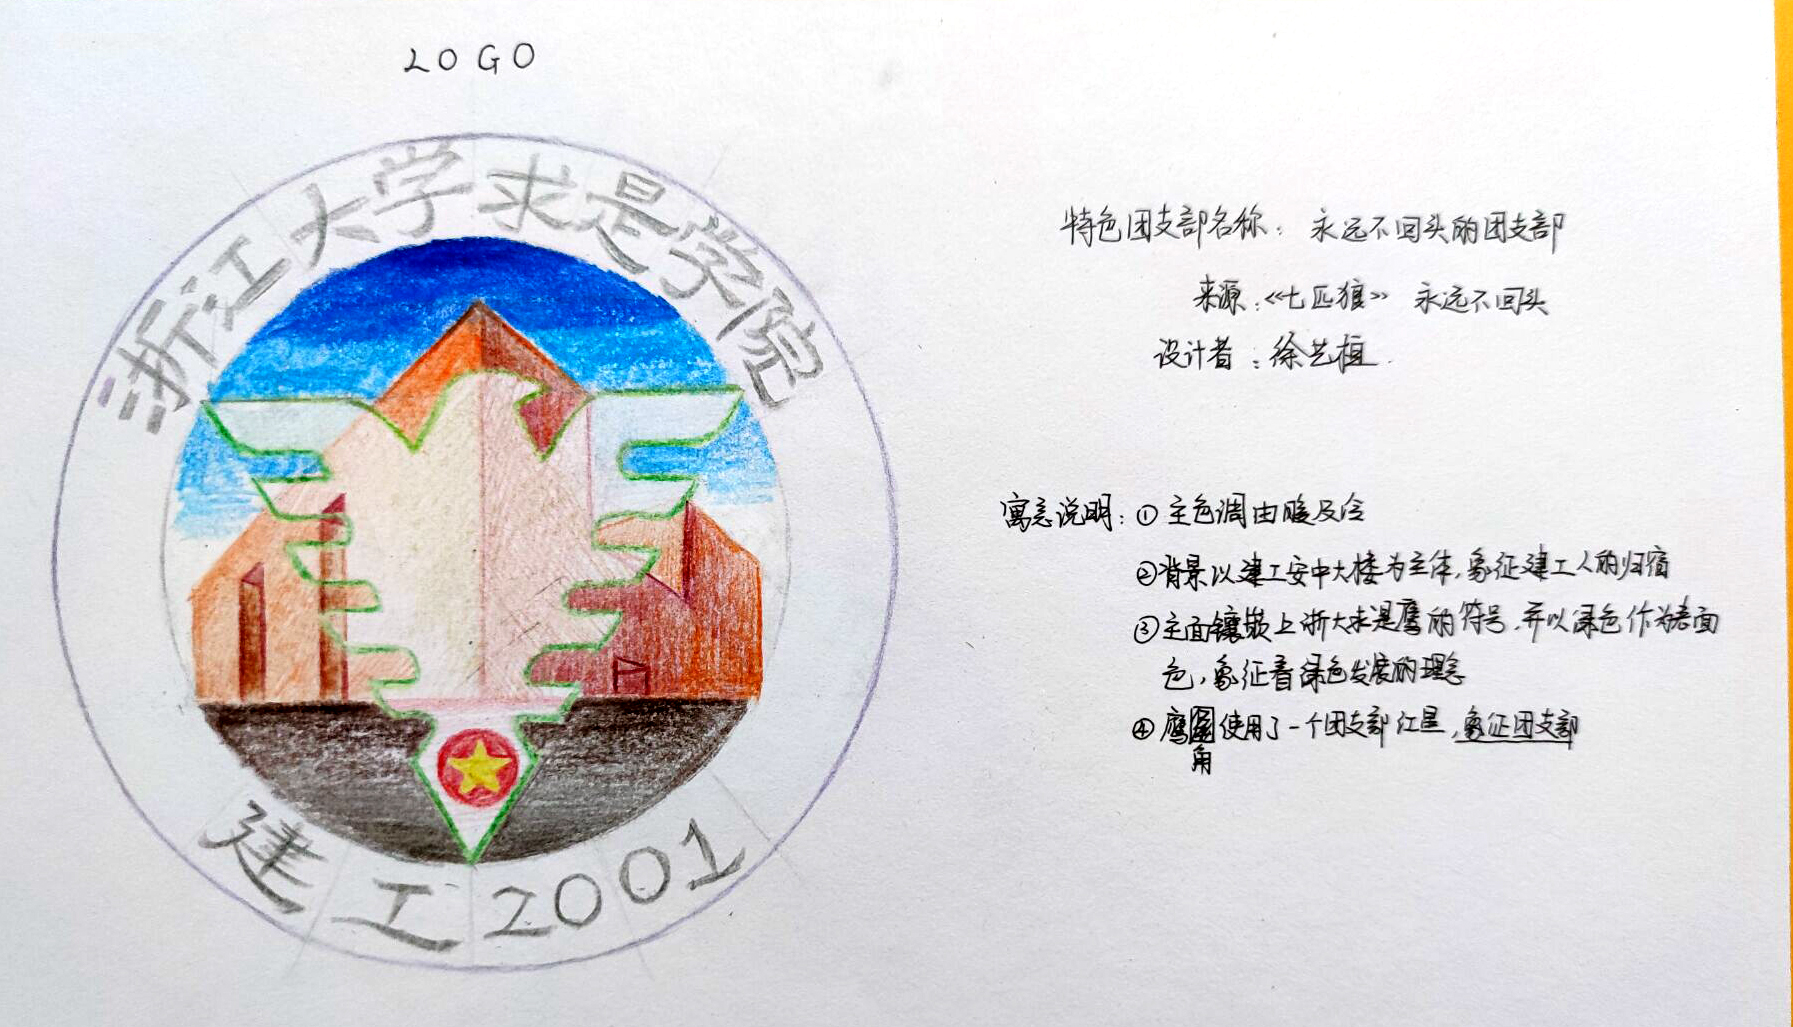 LOGO
浙江大学求是学院
建工2001
特色团支部名称：永远不回头的团支部
来源：《七匹狼》 永远不回头
设计者：徐艺桓.
寓意说明：① 主色调由暖及冷
②背景以建工安中大楼为主体，象征建工人的归宿
③主面镶嵌上浙大求是鹰的符号，并以绿色作为表面
色，象征着绿色发展的理念
④ 鹰 使用了一个团支部红星，象征团支部
角